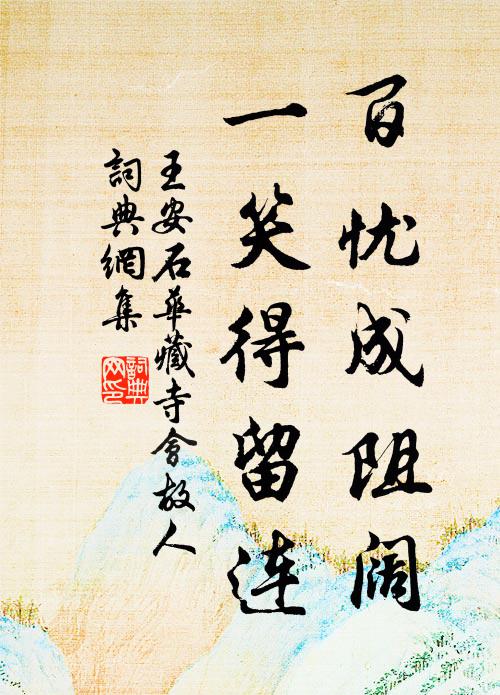 百忧成阻阔
一笑得留连
王安石华藏寺會故人
詞典網集
詞典
网印